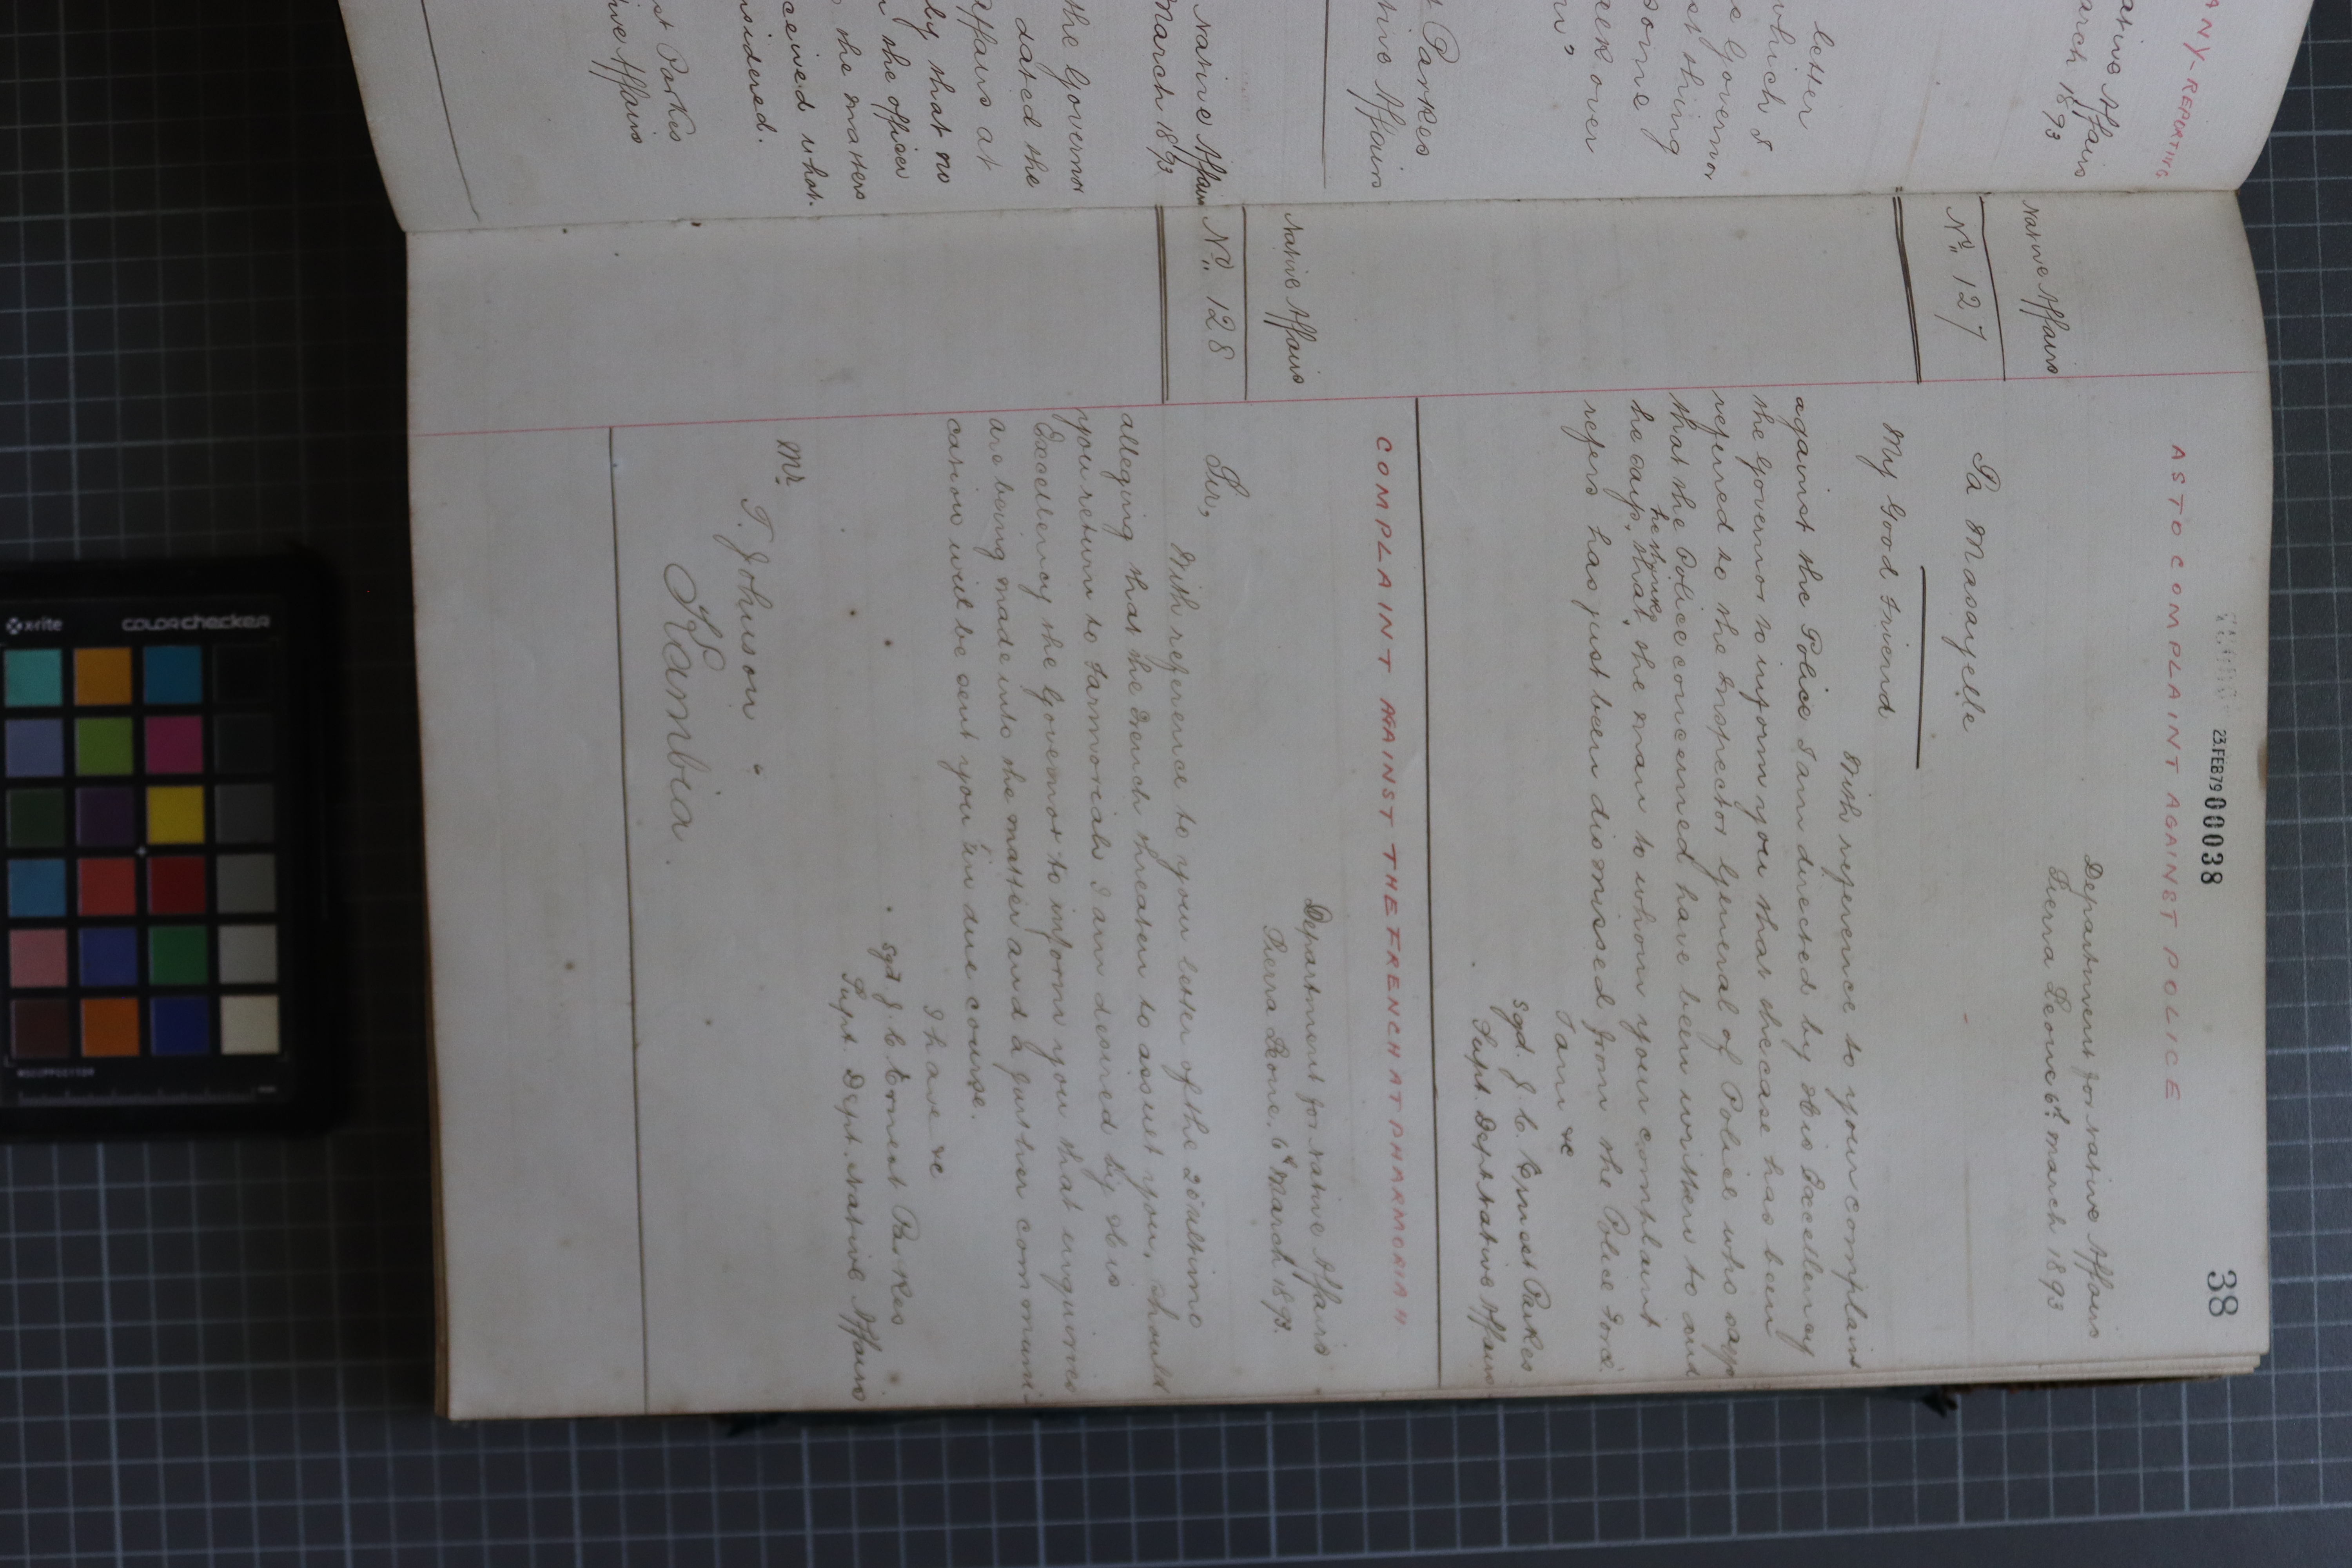 ANY-REPORTING
ative Affairs
arch 1893
letter
which I
e Governor
st thing
some
eek over
t Parkes
tive Affairs
Native Affairs
March 1893
the Governor
dated the
affairs at
ly that no
the officer
the matters
ceived what
nsidered.
st Parkes
ive Affairs
38
23.FEB79 00038
AS TO COMPLAINT AGAINST POLICE
Native Affairs
No. 127
Department for Native Affairs
Sierra Leone 6th March 1893
Pa Masayelle
My Good Friend
With reference to your complaint
against the Police I am directed by His Excellency
the Governor to inform you that the case has been
referred to the Inspector General of Police who says
that the Police concerned have been written to and
he thinks
he says, that, the man to whom your complaint
refers has just been dismissed from the Police Force.
I am &c
Sgd. J. C. Ernest Parkes
Supt. Dept. Native Affairs
COMPLAINT AGAINST THE FRENCH AT PHARMORIAH
Native Affairs
No. 128
Department for Native Affairs
Sierra Leone. 6th March 1893.
Sir,
With reference to your letter of the 20 ultimo
alleging that the French threaten to arrest you, should
you return to Farmoriah I am desired by His
Excellency the Governor to inform you that enquiries
are being made into the matter and a further communi-
cation will be sent you in due course.
I have &c
Sgd J. C. Ernest Parkes
Supt. Dept. Native Affairs
Mr.
T. Johnson
Kambia.
x-rite
colorchecker